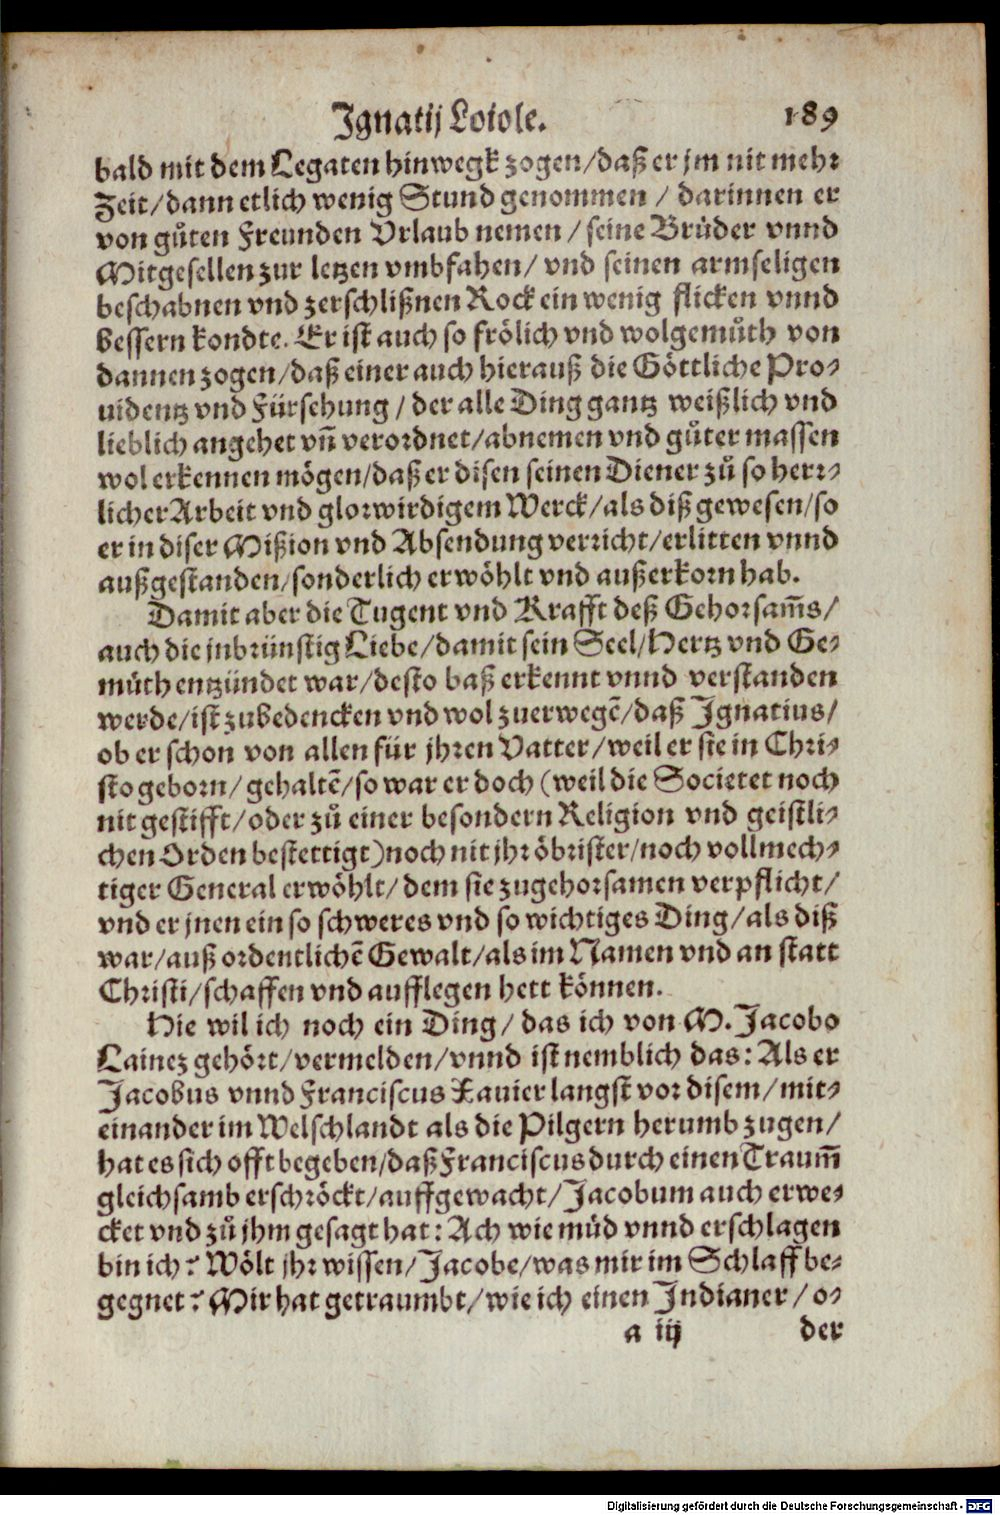 Ignatij Loiole. 189
bald mit dem Legaten hinwegk zogen/daß er jm nit mehr
Zeit/dann etlich wenig Stund genommen / darinnen er
von gůten Freunden Vrlaub nemen / seine Brüder vnnd
Mitgesellen zur letzen vmbfahen/ vnd seinen armseligen
beschabnen vnd zerschlißnen Rock ein wenig flicken vnnd
bessern kondte. Er ist auch so frölich vnd wolgemůth von
dannen zogen/daß einer auch hierauß die Göttliche Pro-
uidentz vnd Fürsehung / der alle Ding gantz weißlich vnd
lieblich angehet vñ verordnet/abnemen vnd gůter massen
wol erkennen mögen/daß er disen seinen Diener zů so herr-
licher Arbeit vnd glorwirdigem Werck/als diß gewesen/so
er in diser Mißion vnd Absendung verricht/erlitten vnnd
außgestanden/sonderlich erwöhlt vnd außerkorn hab.
Damit aber die Tugent vnd Krafft deß Gehorsam̃s/
auch die jnbrünstig Liebe/damit sein Seel/Hertz vnd Ge-
müth entzündet war/desto baß erkennt vnnd verstanden
werde/ist zubedencken vnd wol zuerwegẽ/daß Ignatius/
ob er schon von allen für jhren Vatter/weil er sie in Chri-
sto geborn/ gehaltẽ/so war er doch (weil die Societet noch
nit gestifft/oder zů einer besondern Religion vnd geistli-
chen Orden bestettigt)noch nit jhr öbrister/noch vollmech-
tiger General erwöhlt/ dem sie zugehorsamen verpflicht/
vnd er jnen ein so schweres vnd so wichtiges Ding/als diß
war/auß ordentlichẽ Gewalt/als im Namen vnd an statt
Christi/schaffen vnd aufflegen hett können.
Hie wil ich noch ein Ding/ das ich von M. Jacobo
Lainez gehört/vermelden/vnnd ist nemblich das: Als er
Jacobus vnnd Franciscus Xauier langst vor disem/mit-
einander im Welschlandt als die Pilgern herumb zugen/
hat es sich offt begeben/daß Franciscus durch einen Traum̃
gleichsamb erschröckt/auffgewacht/Jacobum auch erwe-
cket vnd zů jhm gesagt hat: Ach wie müd vnnd erschlagen
bin ich? Wölt jhr wissen/Jacobe/was mir im Schlaff be-
gegnet? Mir hat getraumbt/wie ich einen Indianer/o-
a iij der
Digitalisierung gefördert durch die Deutsche Forschungsgemeinschaft - DFG